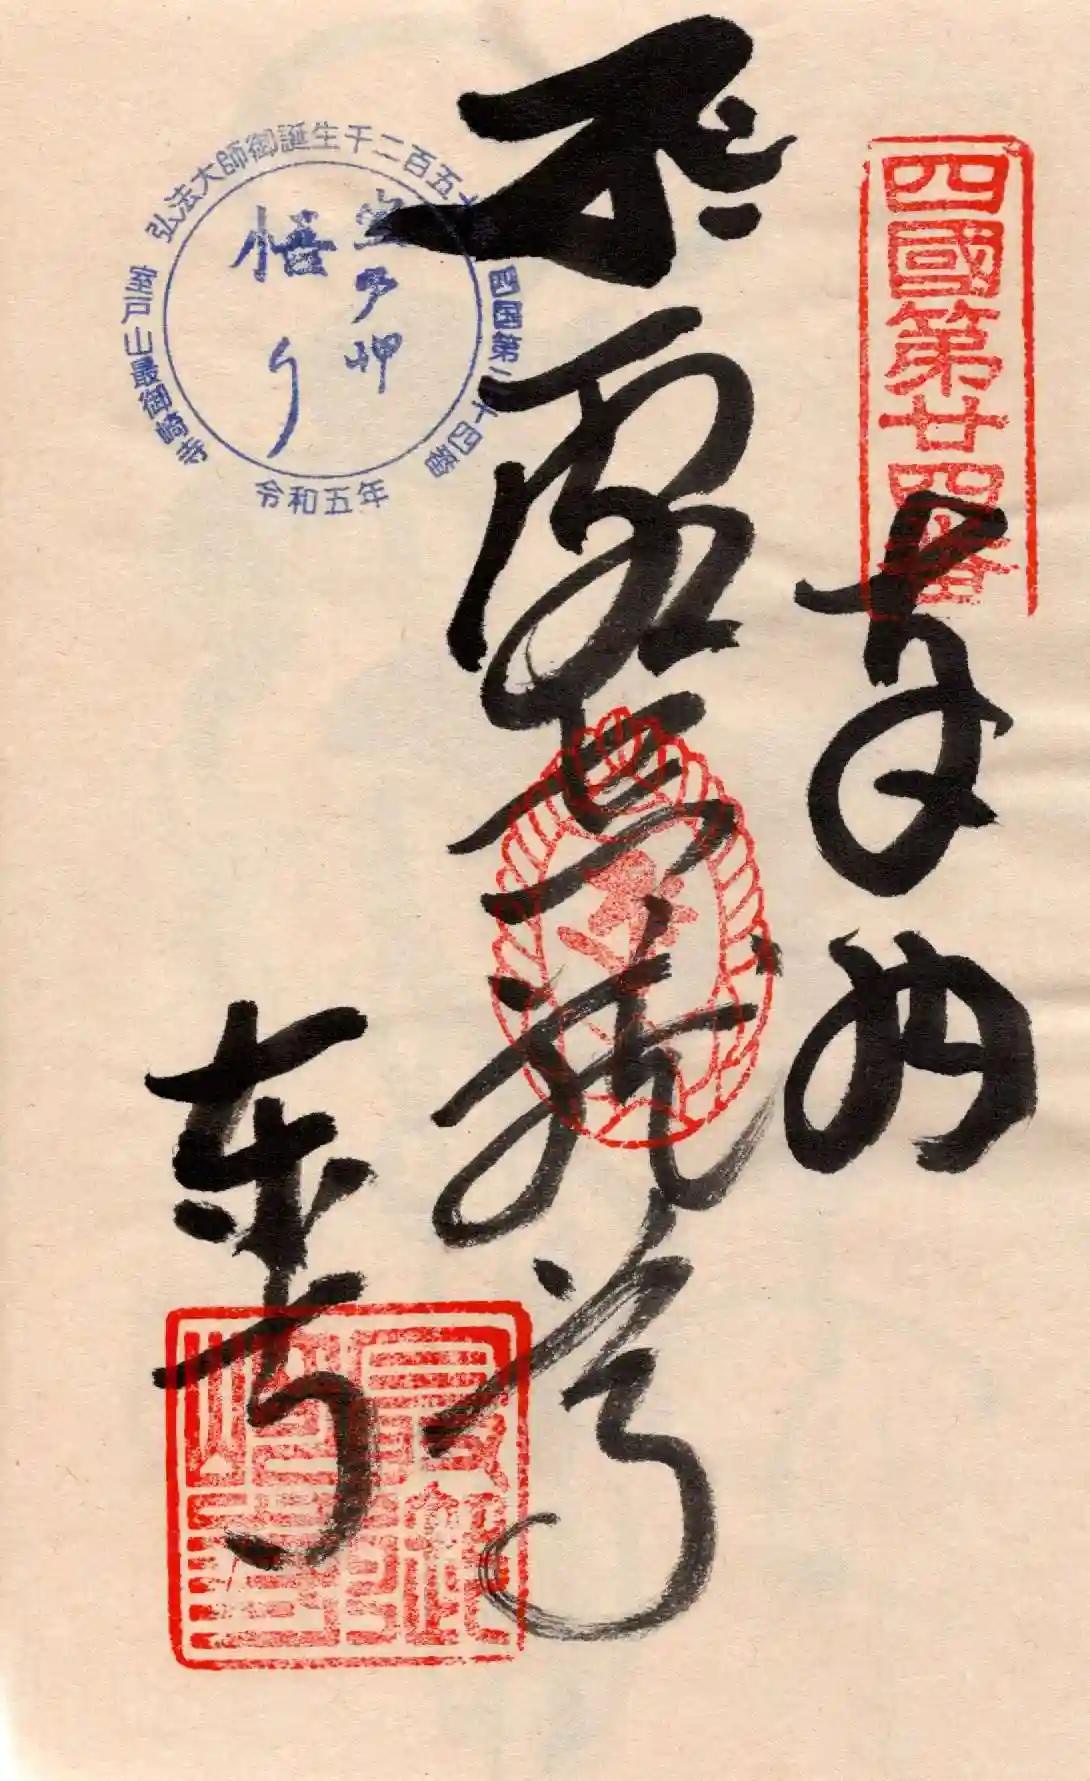 四國第廿四番
奉納
虚空蔵尊
東寺
最御崎寺
弘法大師御誕生千二百五十年
四国第二十四番
室戸山最御崎寺
令和五年
室戸岬
悟り